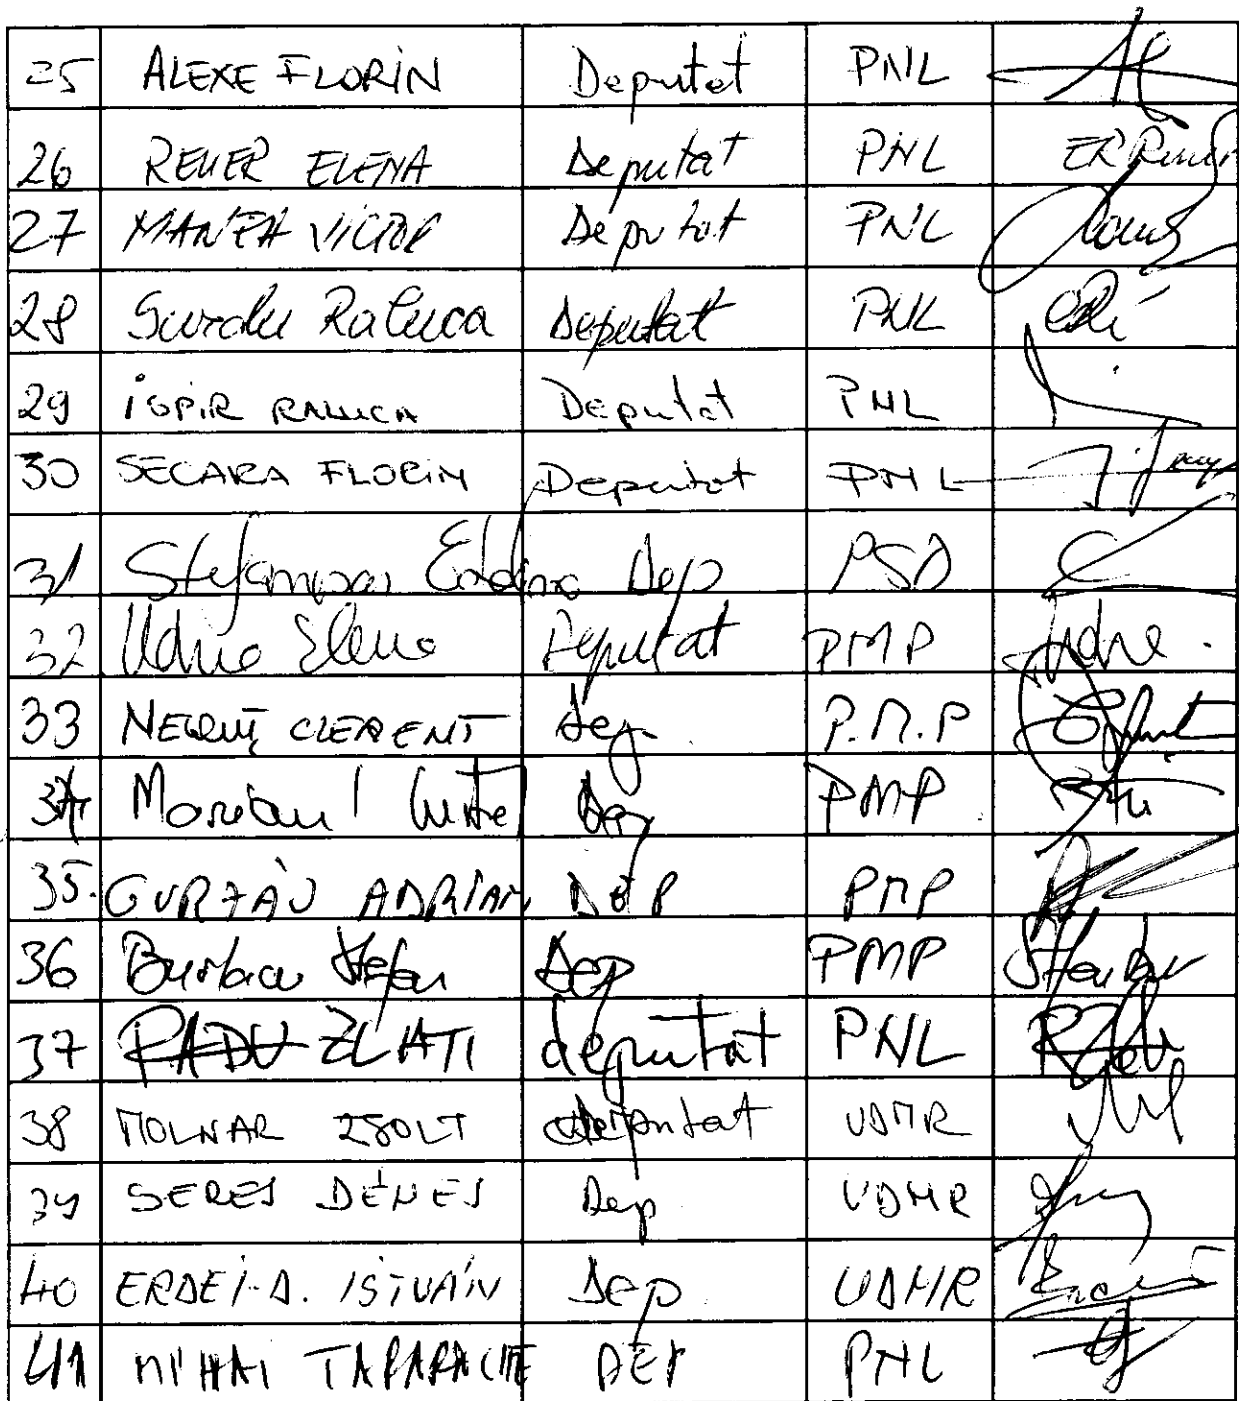 25 ALEXE FLORIN Deputat PNL
26 REUER ELENA Deputat PNL
27 MANEA VICTOR Deputat PNL
28 Surdu Raluca Deputat PNL
29 ISPIR RALUCA Deputat PNL
30 SECARA FLORIN Deputat PNL
31 Dep PSD
32 Udrea Elena Deputat PMP Udrea
33 NEGRUȚ CLEMENT dep. P.M.P
34 Dep PMP
35. GURZĂU ADRIAN DEP PMP
36 Burlacu Ștefan Dep PMP
37 RADU ZLATI deputat PNL
38 MOLNAR ZSOLT deputat UDMR
39 SERES DÉNES Dep UDMR
40 ERDEI-D. ISTVÁN Dep UDMR
41 MIHAI DEP PNL